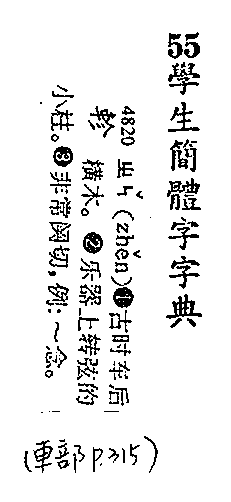 55學生簡體字字典
4820 ㄓㄣˇ (zhěn)❶古时车后
轸 横木。❷乐器上转弦的
小柱。❸非常関切,例:~念。
(車部P.315)